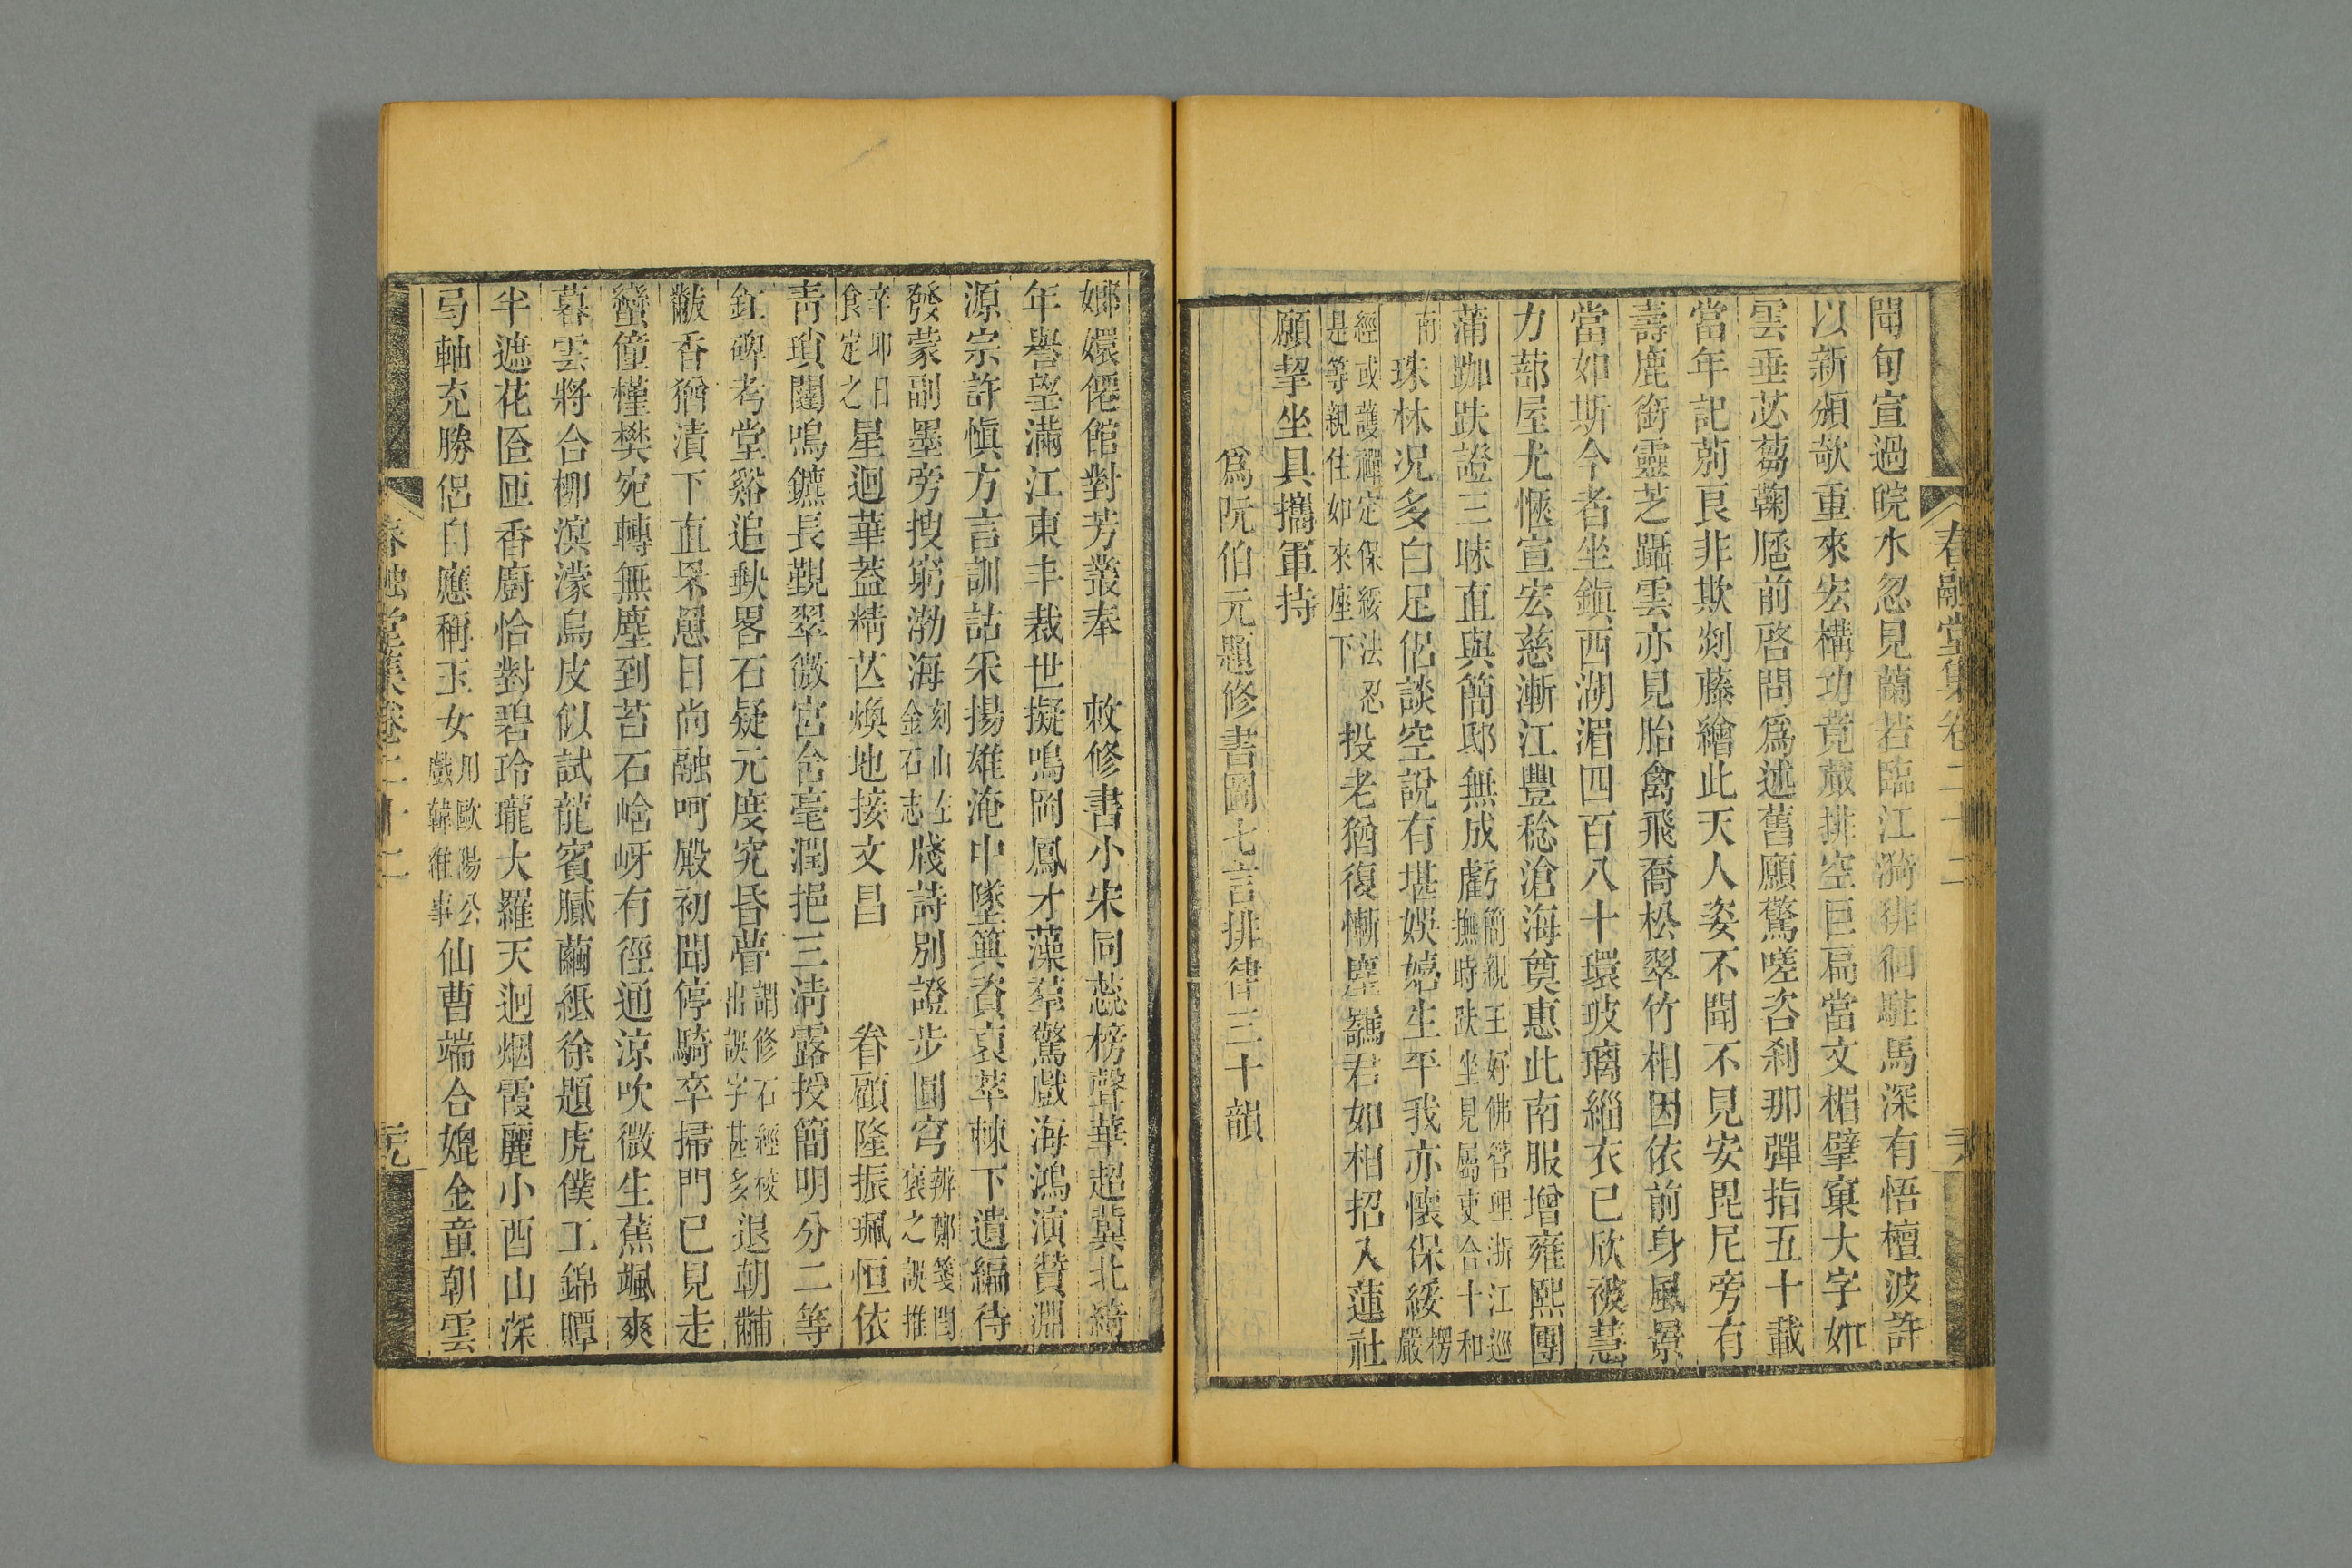 春融堂集卷二十二
聞旬宣過皖水忽見蘭若臨江漪徘徊駐馬深有悟檀波許
以新頻欹重來宏構功竟蕆排空巨扁當文楣擘窠大字如
雲垂苾蒭鞠䠆前啓問爲述舊願驚嗟咨刹那彈指五十載
當年記莂良非欺剡藤繪此天人姿不聞不見安毘尼旁有
壽鹿銜靈芝躡雲亦見胎禽飛喬松翠竹相因依前身風景
當如斯今者坐鎭西湖湄四百八十環玻璃緇衣已欣被慧
力蔀屋尤愜宣宏慈漸江豐稔滄海奠惠此南服增雍熙團
蒲跏趺證三昧直與簡邸無成虧簡親王好佛管理浙江巡撫時趺坐見屬吏合十和
南珠林况多白足侶談空說有堪娛嬉生平我亦懷保綏楞嚴
經或護禪定保綏法忍是等親住如來座下投老猶復慚塵羈君如相招入蓮社
願挈坐具攜軍持
爲阮伯元題修書圖七言排律三十韻
嫏嬛僊館對芳叢奉　敕修書小宋同蕊榜聲華超冀北綺
年譽望滿江東丰裁世擬鳴岡鳳才藻羣驚戲海鴻演贊淵
源宗許愼方言訓詁采揚雄淹中墜簡資裒萃棘下遺編待
發蒙副墨旁搜窮渤海刻山左金石志牋詩別證步圓穹辨鄭箋閻褒之誤推
辛卯日食定之星迴華葢精芒煥地接文昌　眷顧隆振珮恒依
靑瑣闥鳴鑣長覲翠微宮含毫潤挹三淸露授簡明分二等
釭碑考堂谿追缺畧石疑元度究昏瞢謂修石經校出誤字甚多退朝黼
黻香猶漬下直罘罳日尚融呵殿初聞停騎卒掃門已見走
蠻僮槿樊宛轉無塵到苔石㟏岈有徑通涼吹微生蕉颯爽
暮雲將合柳溟濛烏皮似試龍賓膩繭紙徐題虎僕工錦贉
半遮花匼匝香廚恰對碧玲瓏大羅天迥烟霞麗小酉山深
弓軸充勝侶自應稱玉女用歐陽公戲韓維事仙曹端合媲金童朝雲
春融堂集卷二十二